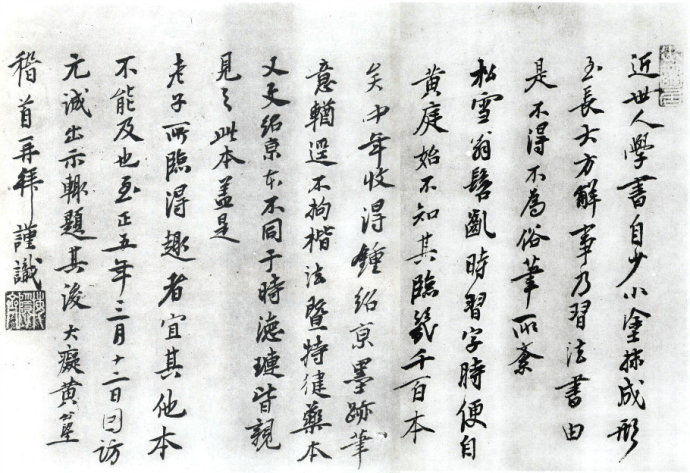 近世人學書自少小塗抹成形
至長大方解事乃習法書由
是不得不為俗筆所紊
松雪翁髫齔時習字時便自
黃庭始不知其臨幾千百本
矣中年收得鍾紹京墨跡筆
意輶逕不拘楷法暨特健藥本
又與紹京本不同于時德璉皆親
見之此本盖是
老子所臨得趣者宜其他本
不能及也至正五年三月十二日因訪
元誠出示輙題其後大癡黃公望
稽首再拜謹識